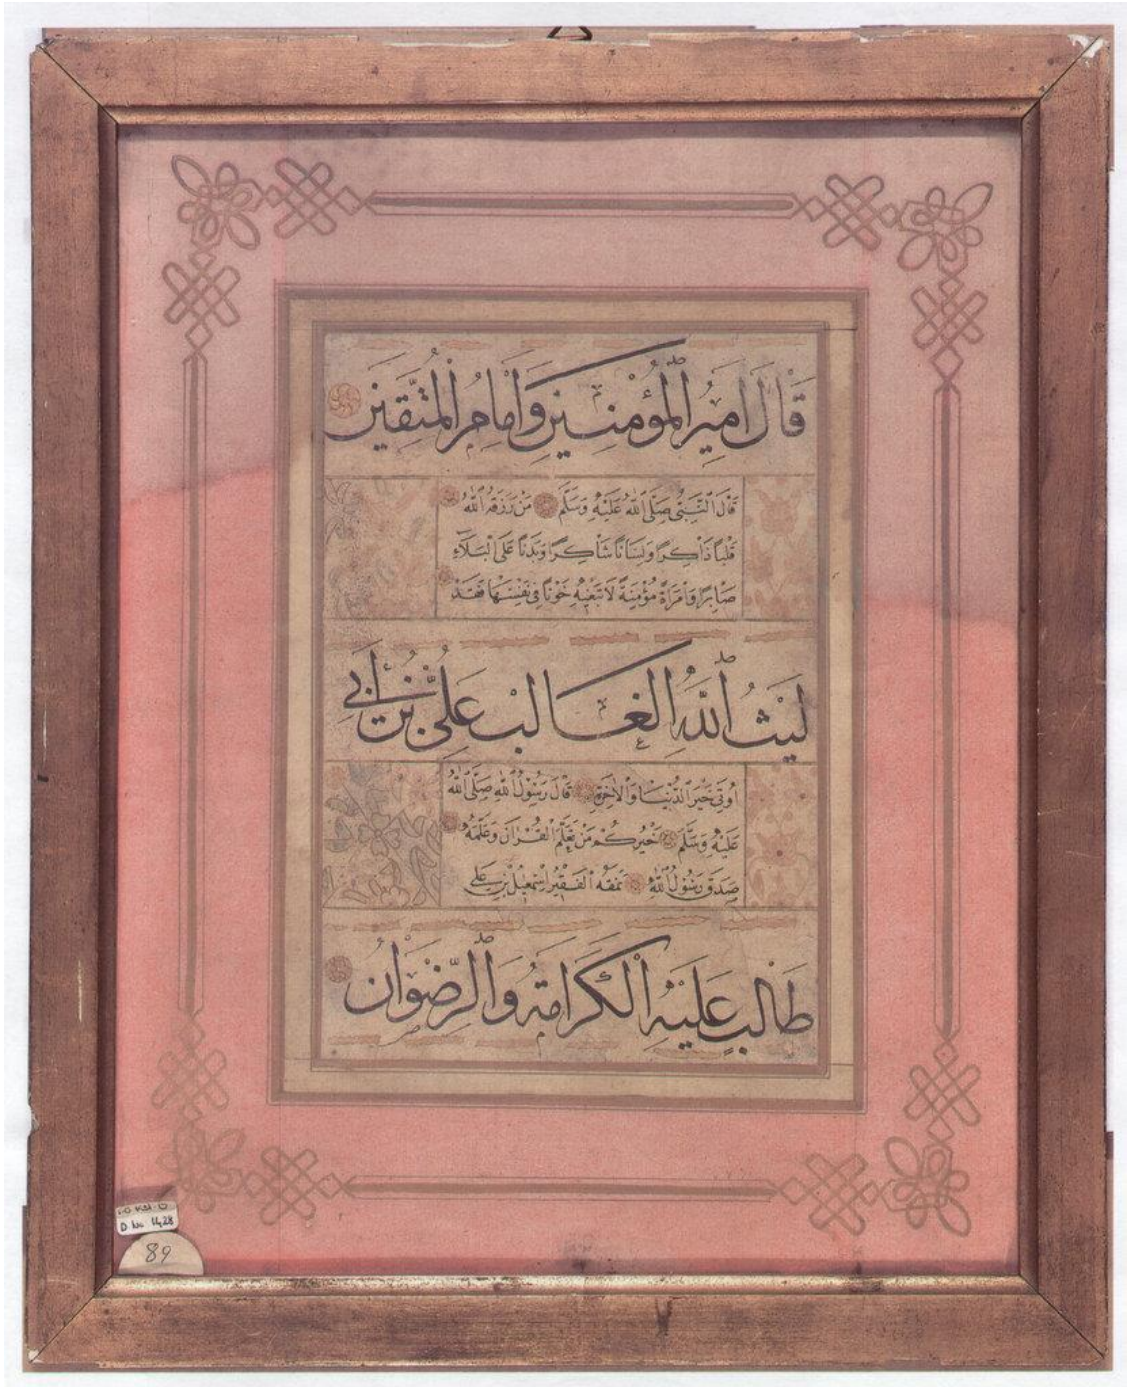 قَالَ اَمِيرُ الْمُؤْمِنِينَ وَاِمَامُ الْمُتَّقِينَ
قَالَ النَّبِىُّ صَلَّى اللّٰهُ عَلَيْهِ وَسَلَّمَ مَنْ رَزَقَهُ اللّٰهُ
قَلْبًا ذَاكِرًا وَلِسَانًا شَاكِرًا وَبَدَنًا عَلَى الْبَلَاءِ
صَابِرًا وَامْرَأَةً مُؤْمِنَةً لَا تَبْغِيهِ خَوْنًا فِى نَفْسِهَا فَقَدْ
لَيْثُ اللّٰهِ الْغَالِبُ عَلِىُّ بْنُ اَبِى
اُوتِىَ خَيْرَ الدُّنْيَا وَالْاٰخِرَةِ قَالَ رَسُولُ اللّٰهِ صَلَّى اللّٰهُ
عَلَيْهِ وَسَلَّمَ خَيْرُكُمْ مَنْ تَعَلَّمَ الْقُرْاٰنَ وَعَلَّمَهُ
صَدَقَ رَسُولُ اللّٰهِ نَمَقَهُ الْفَقِيرُ اِسْمٰعِيلُ بْنُ عَلِى
طَالِبٍ عَلَيْهِ الْكَرَامَةُ وَالرِّضْوَانُ
D No 1428
89